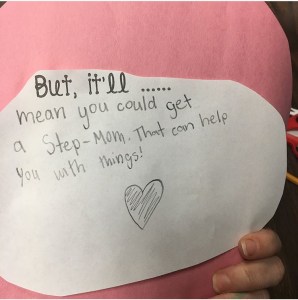 But, it'll ......
mean you could get
a Step-Mom. That can help
you with things!